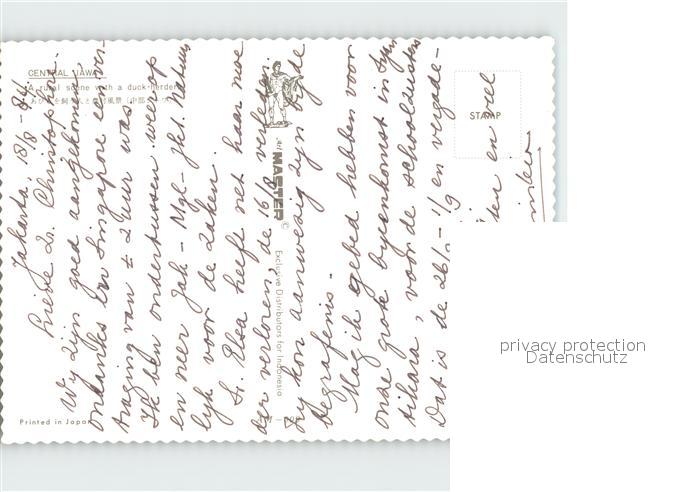 CENTRAL JAWA
A rural scene with a duck-herder
STAMP
Art MASTER ©
Exclusive Distributors for Indonesia
Printed in Japan
Jakarta 18/8-84
Lieve Zr. Christophora.
Wij zijn goed aangekomen
ondanks in Singapore een ver-
traging van ± 2 uur was.
Ik ben ondertussen weer op
en neer Jak - Mgl - Jkt.
lijk voor de zaken.
Zr. Elsa heeft net haar
der verloren, de 16/8
Zij kon aanwezig zijn bij de
begrafenis.
Mag ik gebed hebben voor
onze grote bijeenkomst in
tikara, voor de schoolzusters
Dat is de 26/ - 1/9 en vergade-
en veel
privacy protection
Datenschutz